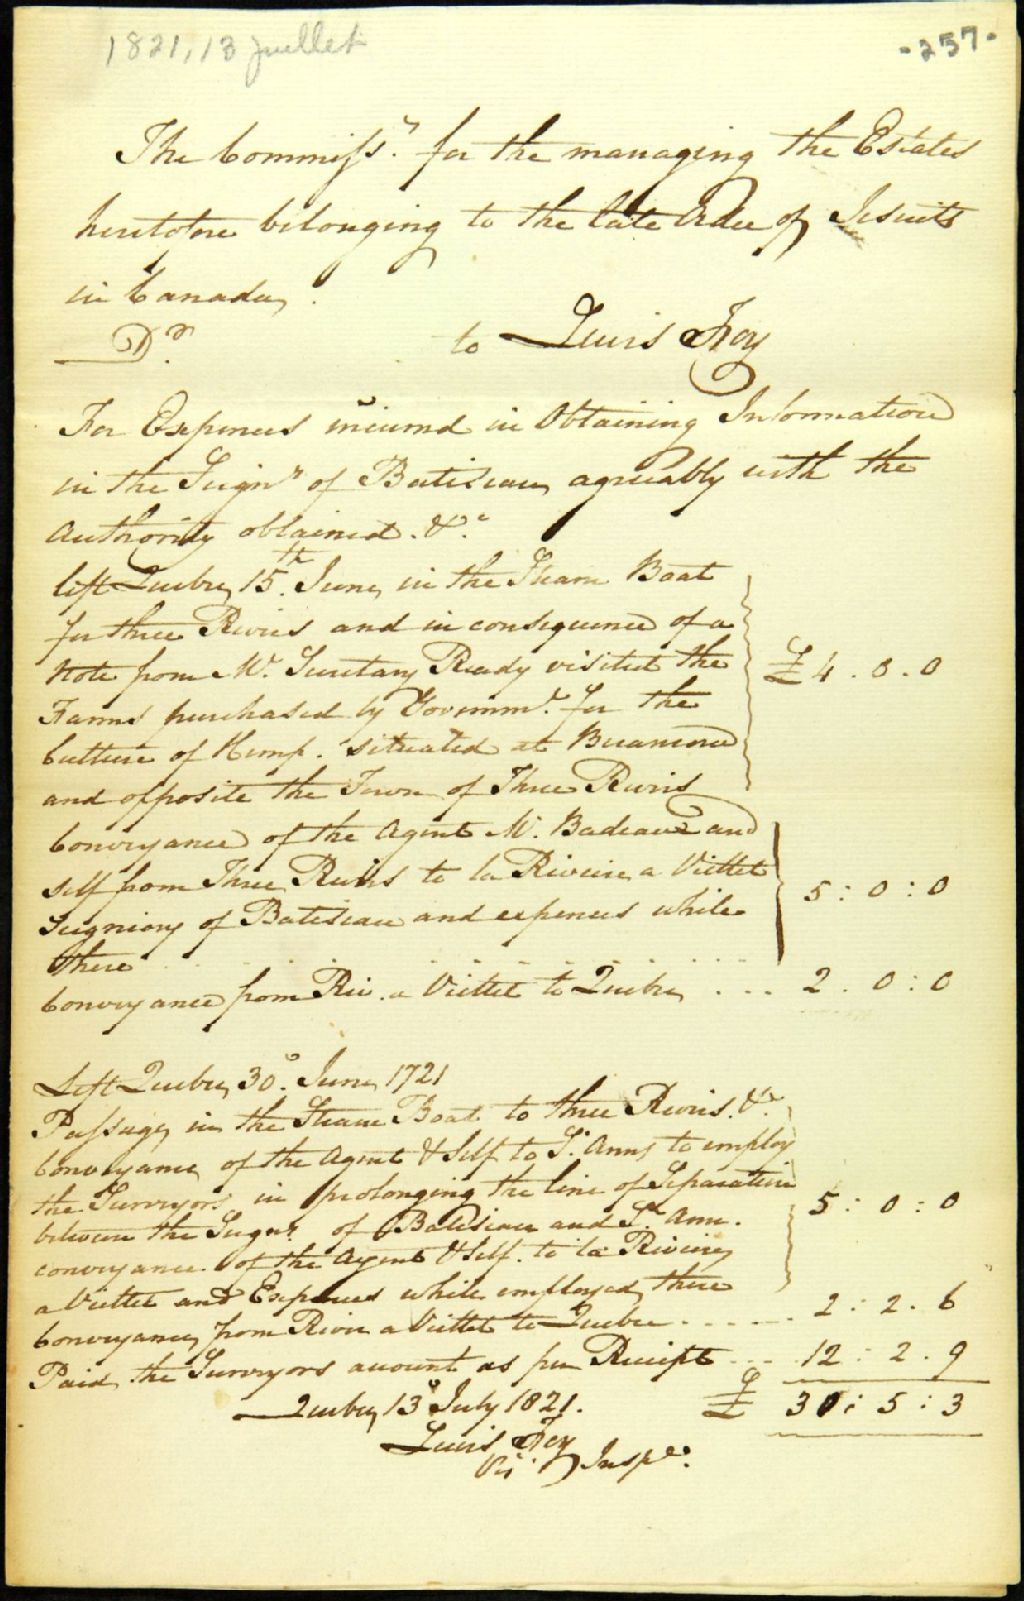 1821, 13 juillet
-257-
The Commiss.rs for the managing the Estates
heretofore belonging to the late Order of Jesuits
in Canada
Dr. to Lewis Foy
For Expences incurred in Obtaining Information
in the Seignry of Batiscan, agreeably with the
Authority obtained. &c.
left Quebec 15th June, in the Steam Boat
for three Rivers and in consequence of a
Note from Mr. Secretary Ready visited the
Farms purchased by Governmt. for the
Culture of Hemp. situated at Becancour
and opposite the Town of Three Rivers
£ 4 . 0 . 0
Conveyance of the Agent Mr. Badeaux and
self from Three Rivers to la Riviere a Viellet
Seigniory of Batiscan and expences while
there
5 : 0 : 0
Conveyance from Riv. a Viellet to Quebec ... 2 . 0 : 0
Left Quebec, 30. June, 1721
Passage, in the Steam Boat to three Rivers. &c.
Conveyance of the Agent & Self to St. Anns to employ
the Surveyors in prolonging the line of Separation
between the Seigns. of Batiscan and St. Ann.
conveyance of the Agent & Self to la Riviere
a Viellet and Expences while employed, there
5 : 0 : 0
Conveyance, from River a Viellet to Quebec ------ 2 : 2 . 6
Paid the Surveyors account as per Receipt --- 12 : 2 . 9
£ 30 : 5 : 3
Quebec, 13 July 1821.
Lewis Foy
Inspr.